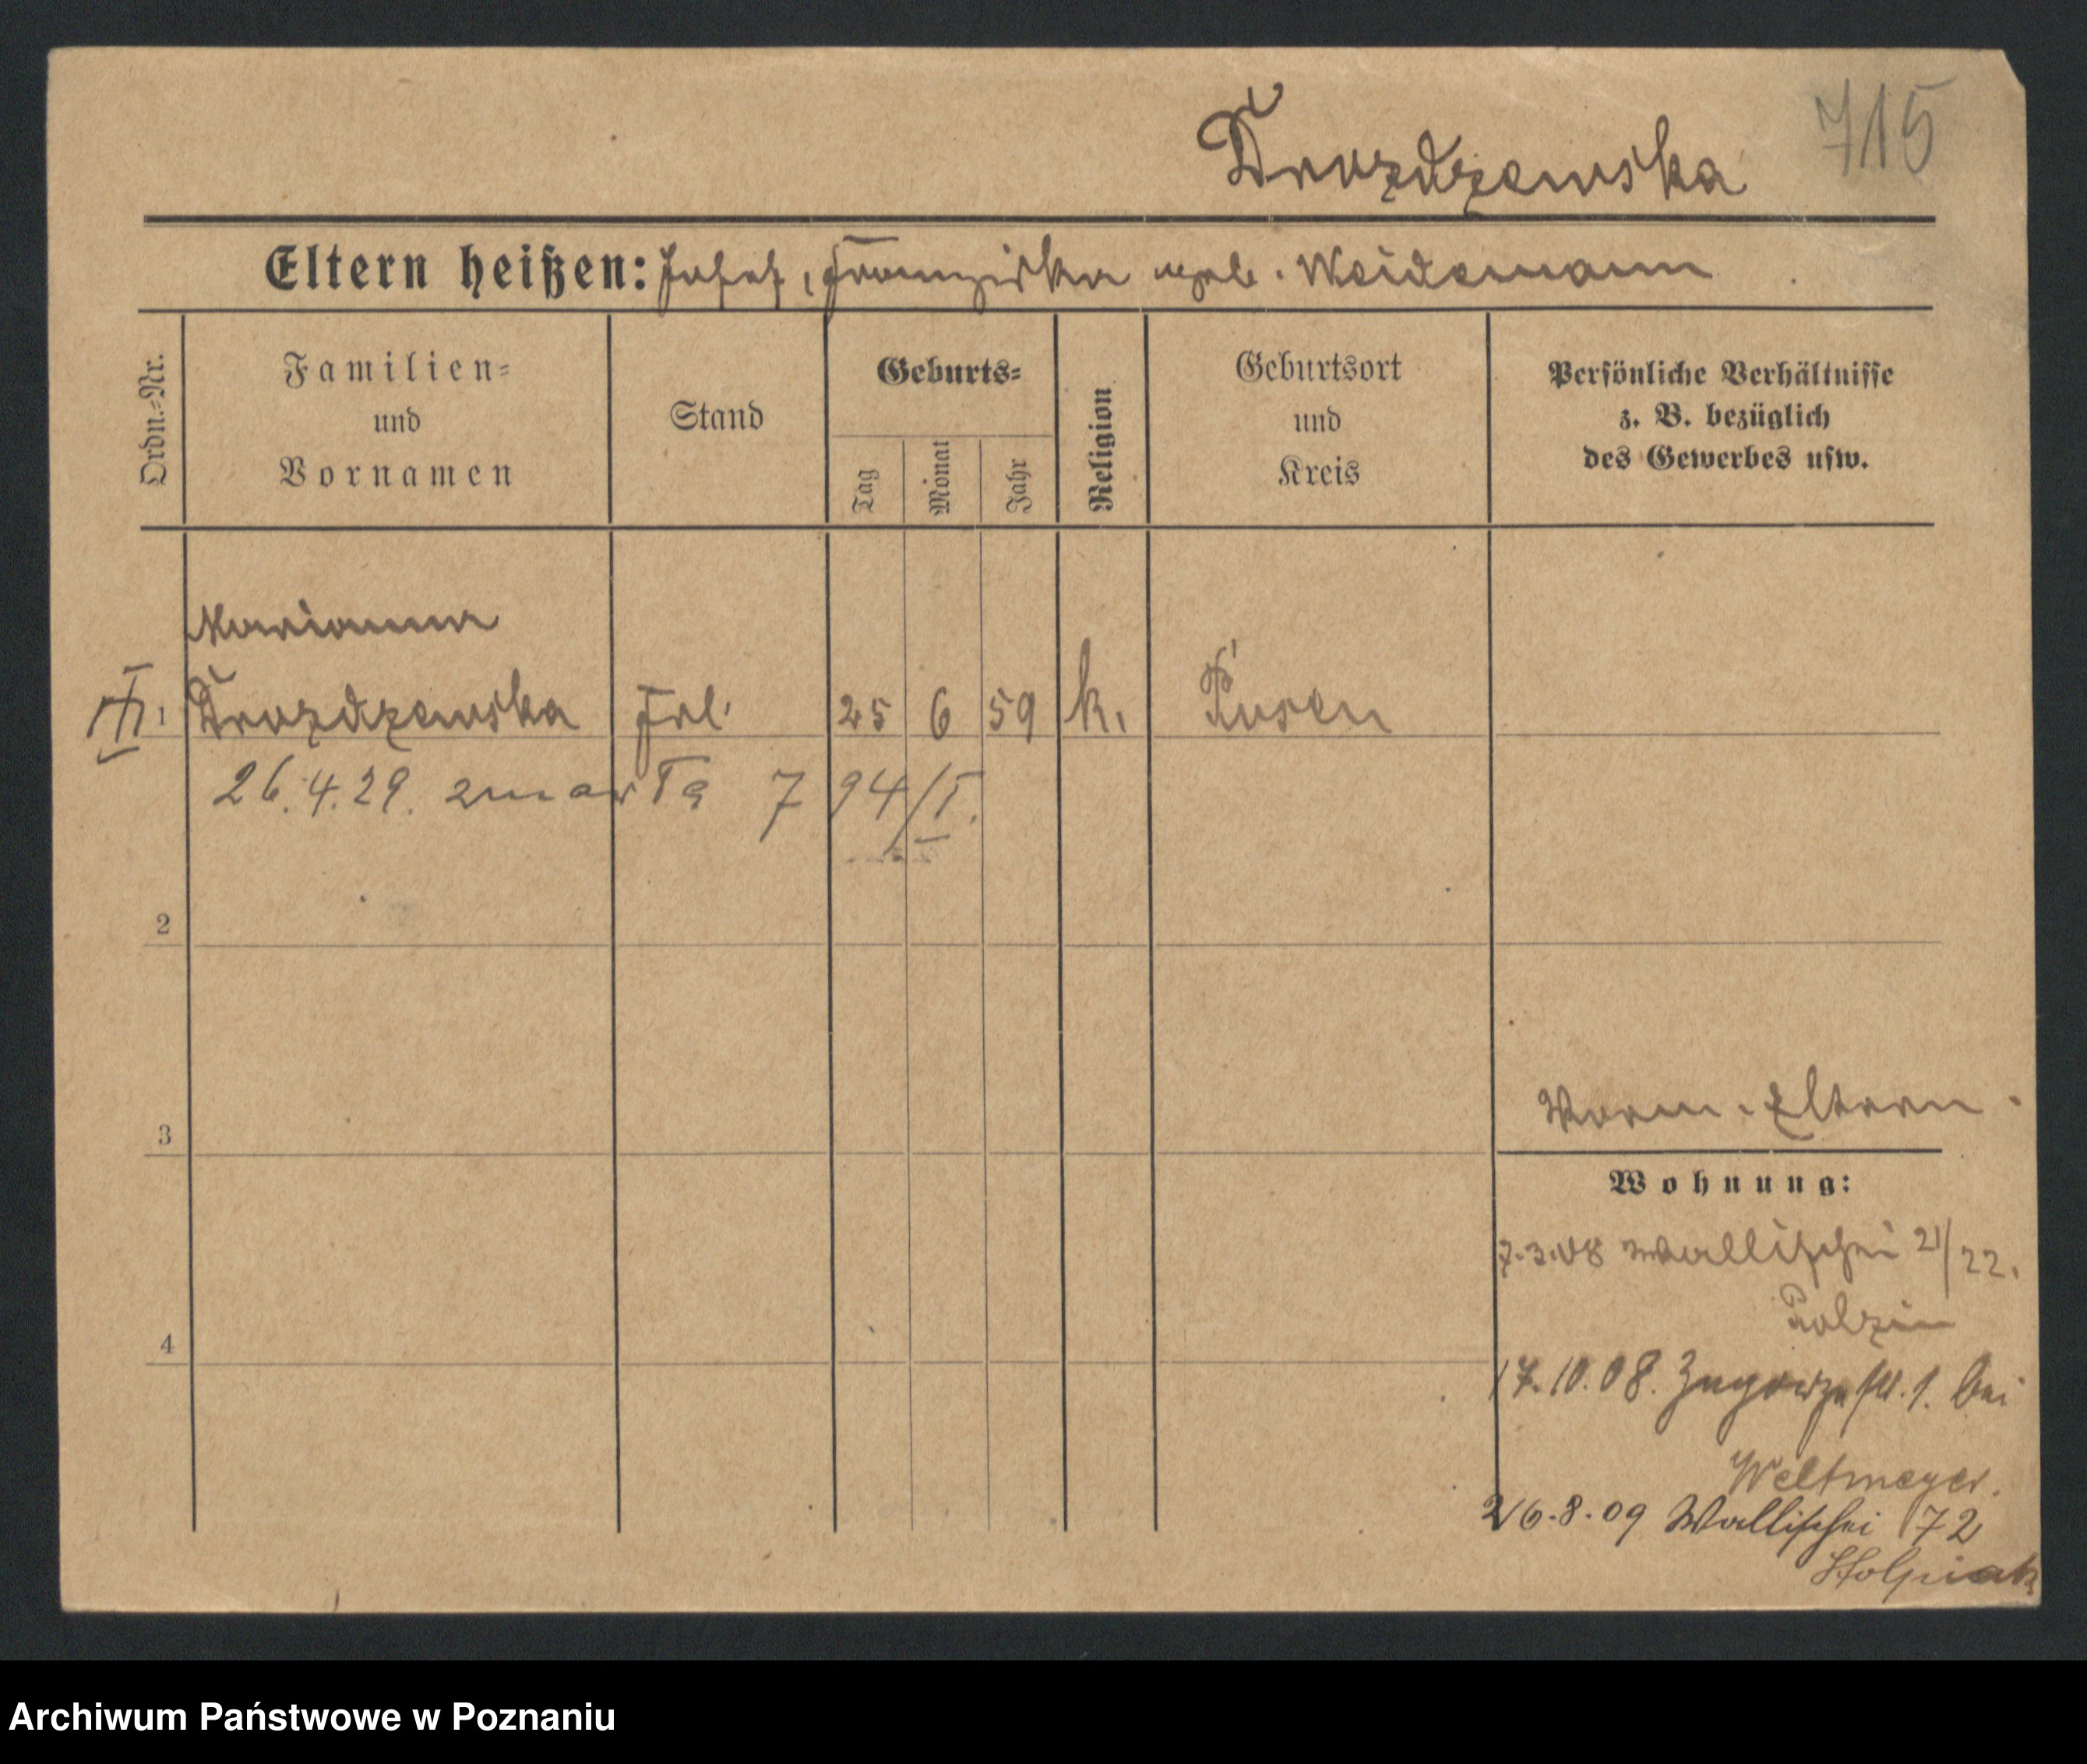 715
Drozdzewska
Eltern heißen: Josef, Franziska geb. Weidemann
Ordn.-Nr.
Familien-
und
Vornamen
Stand
Geburts-
Tag
Monat
Jahr
Religion
Geburtsort
und
Kreis
Persönliche Verhältnisse
z. B. bezüglich
des Gewerbes usw.
Marianna
1 Drozdzewska Frl. 25 6 59 k. Posen
26.4.29. zmar 794/I.
2
3
4
Verm. Eltern.
Wohnung:
7.3.08 Wallischei 21/22.
Polzin
17.10.08. Zagorze 1. bei
Weltmeyer.
26.8.09 Wallischei 72
Stolpiak
Archiwum Państwowe w Poznaniu